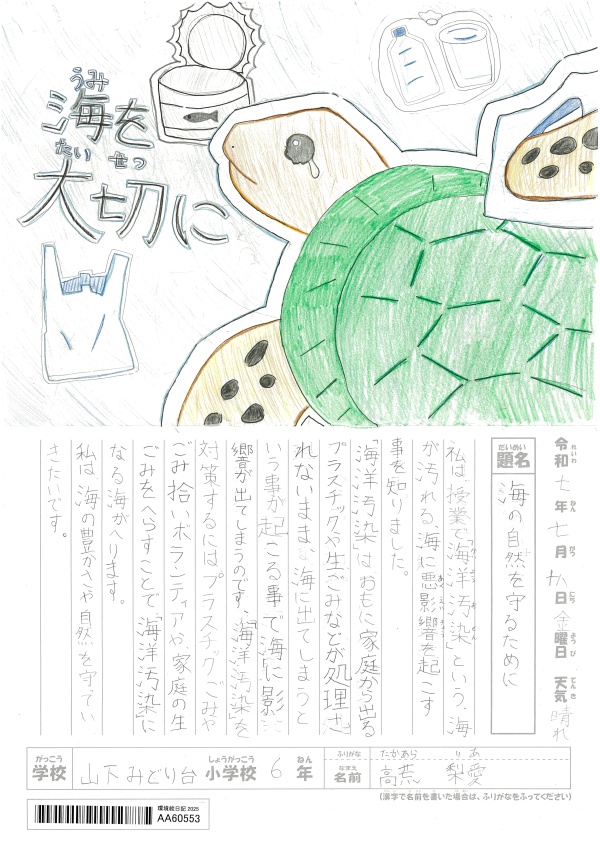 うみ
海を
たい せつ
大切に
令和七年七月十八日金曜日 天気 晴れ
れいわ ねん がつ にち ようび てんき
だいめい
題名 海の自然を守るために
私は、授業で「海洋汚染」という、海
が汚れる、海に悪影響を起こす
事を知りました。
「海洋汚染」はおもに家庭から出る
プラスチックや生ごみなどが処理さ
れないまま、海に出てしまうと
いう事が起こる事で海に影
響が出てしまうのです。「海洋汚染」を
対策するにはプラスチックごみや
ごみ拾いボランティアや家庭の生
ごみをへらすことで、「海洋汚染」に
なる海がへります。
私は海の豊かさや自然を守ってい
きたいです。
がっこう しょうがっこう ねん
学校 山下みどり台 小学校 6 年
ふりがな たかあら りあ
なまえ
名前 高荒 梨愛
(漢字で名前を書いた場合は、ふりがなをふってください)
環境絵日記 2025
AA60553